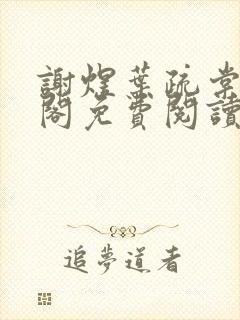 謝煌葉疏棠
閣免費閱讀
追夢道者